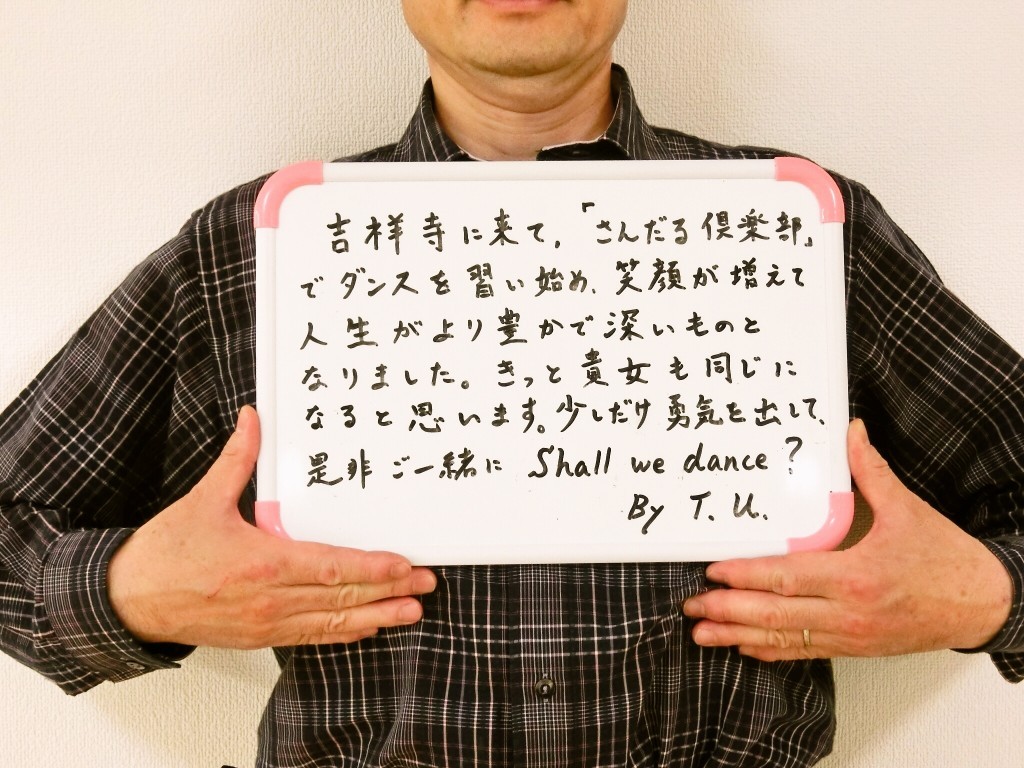 吉祥寺に来て,「さんだる倶楽部」
でダンスを習い始め、笑顔が増えて
人生がより豊かで深いものと
なりました。きっと貴女も同じに
なると思います。少しだけ勇気を出して、
是非ご一緒に Shall we dance?
By T. U.